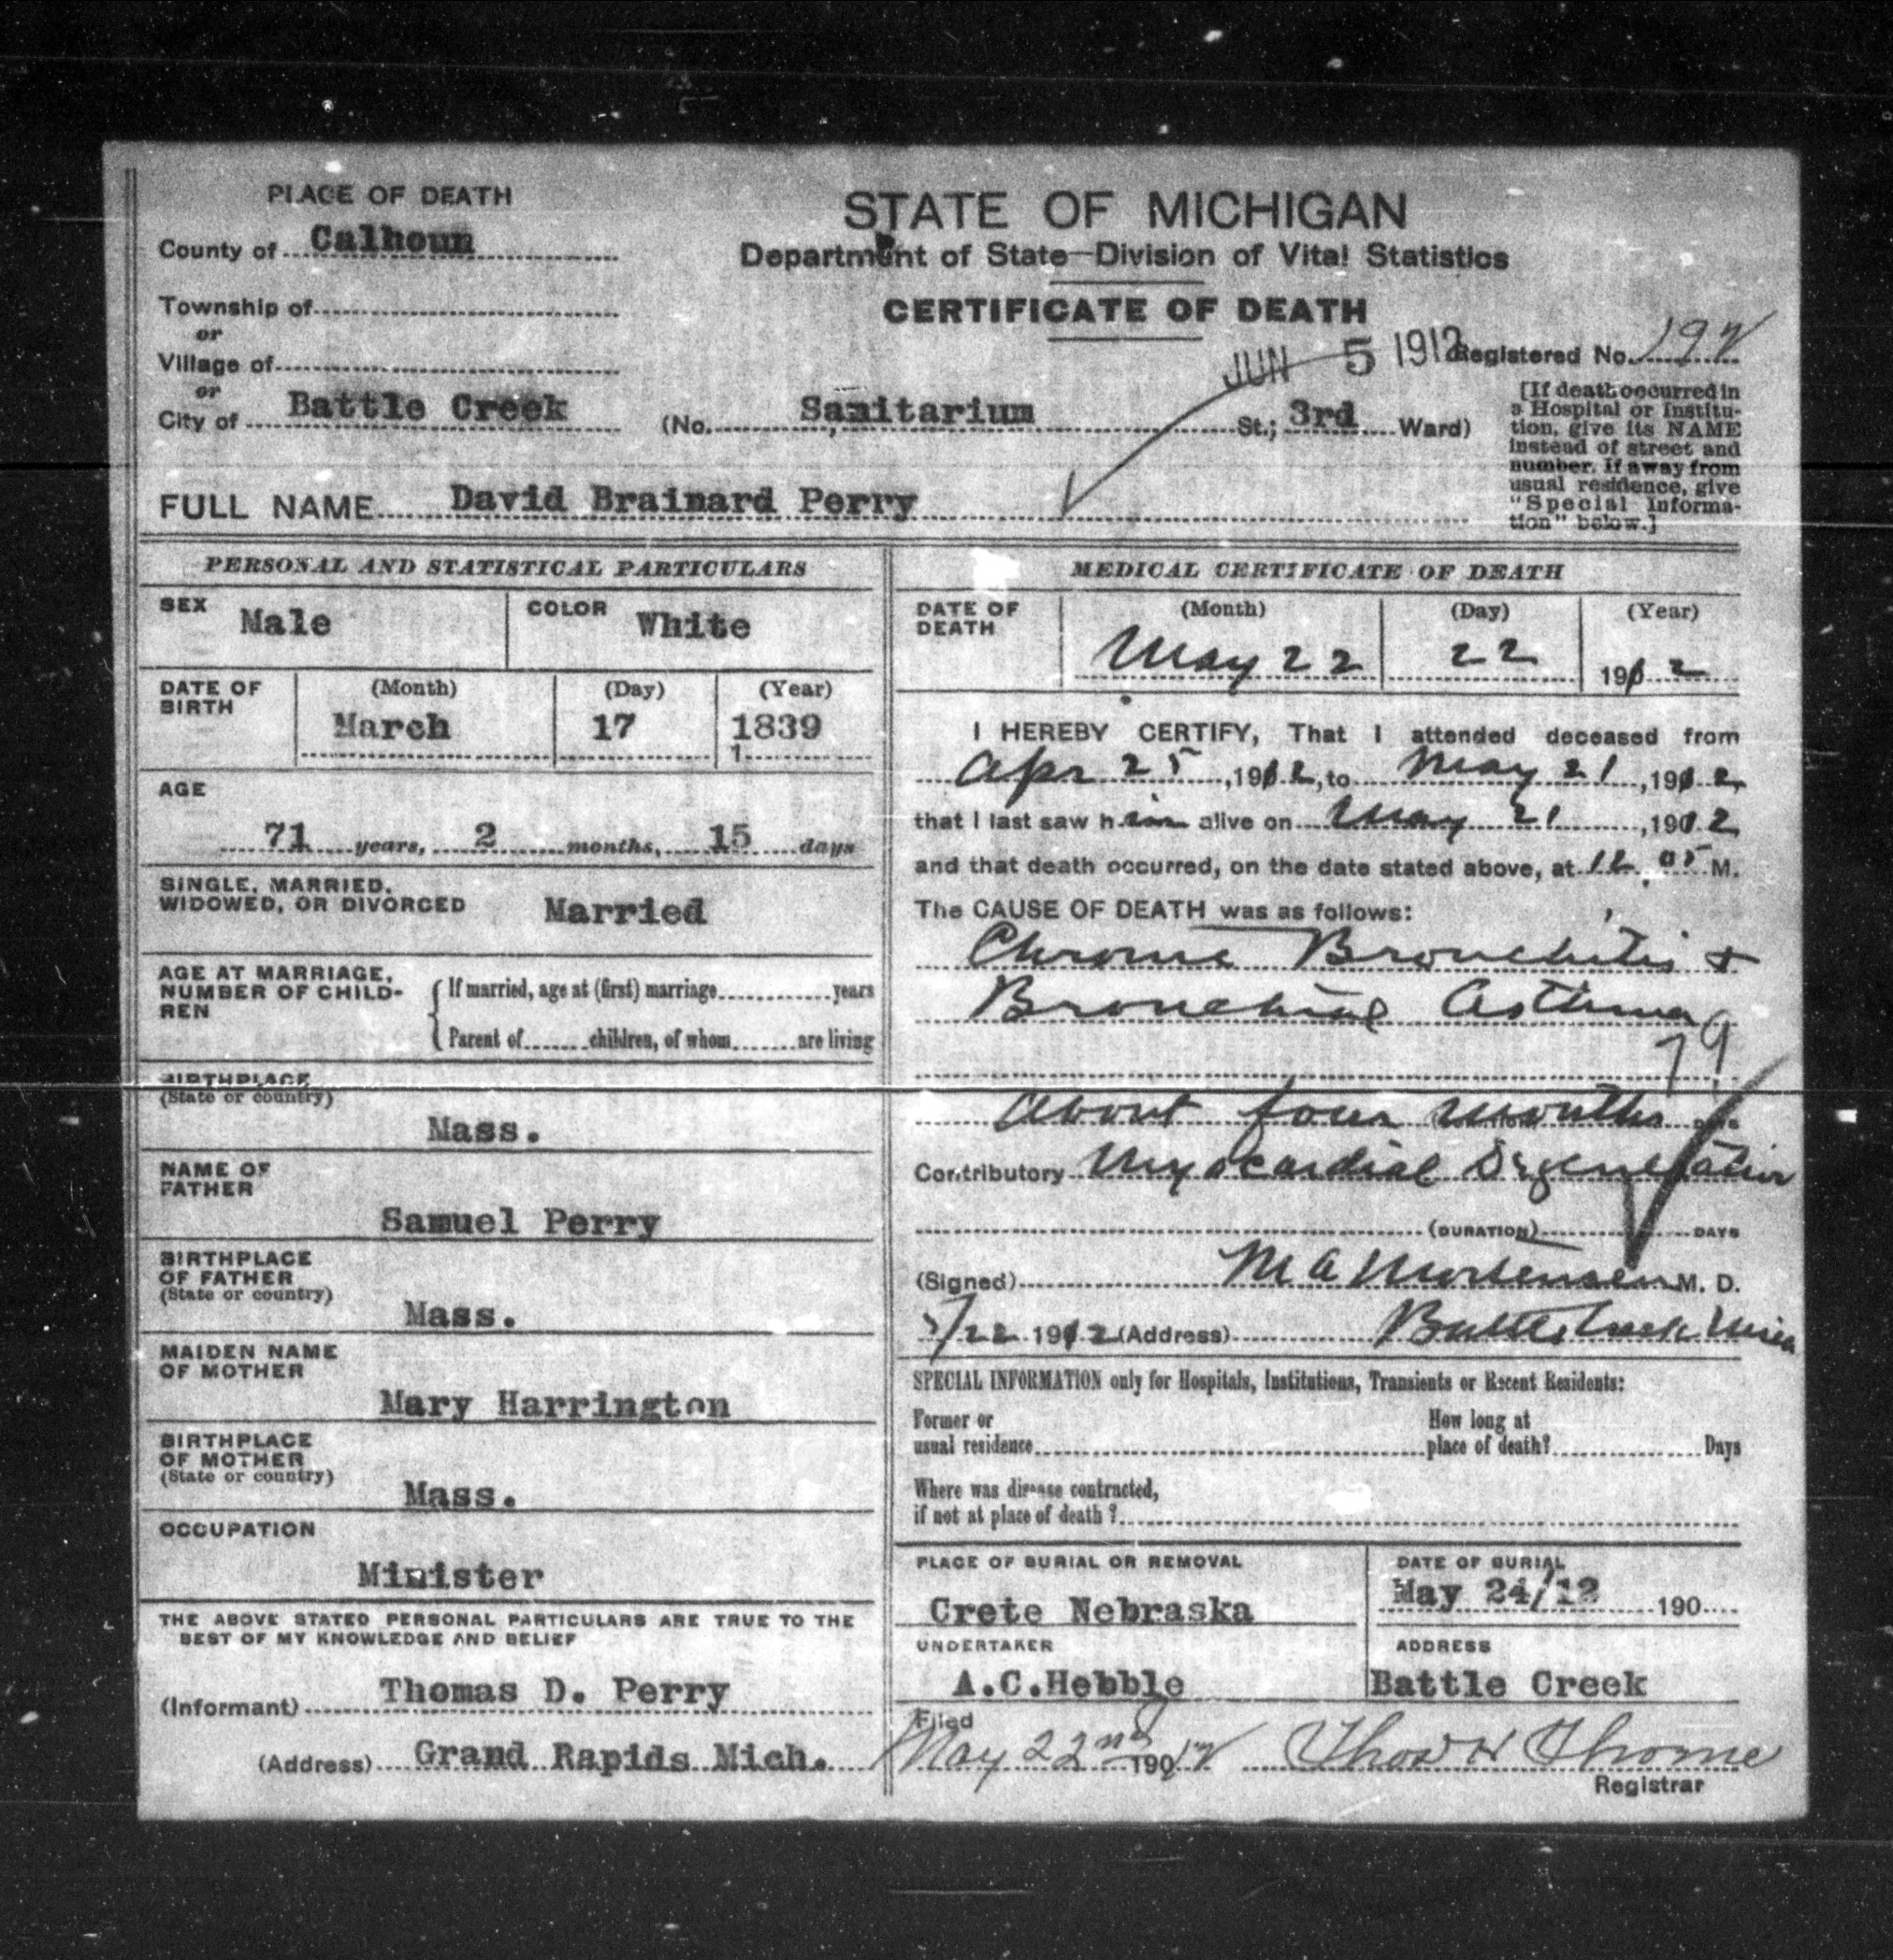 PLACE OF DEATH
County of Calhoun
Township of
or
Village of
or
City of Battle Creek
STATE OF MICHIGAN
Department of State—Division of Vital Statistics
CERTIFICATE OF DEATH
JUN 5 1912
Registered No. 192
(No. Sanitarium St.; 3rd Ward)
[If death occurred in
a Hospital or Institu-
tion, give its NAME
instead of street and
number. If away from
usual residence, give
"Special Informa-
tion" below.]
FULL NAME David Brainard Perry
PERSONAL AND STATISTICAL PARTICULARS
SEX Male
COLOR White
DATE OF BIRTH
(Month) (Day) (Year)
March 17 1839
1
AGE
71 years, 2 months, 15 days
SINGLE, MARRIED,
WIDOWED, OR DIVORCED Married
AGE AT MARRIAGE,
NUMBER OF CHILD-
REN
If married, age at (first) marriage years
Parent of children, of whom are living
BIRTHPLACE
(State or country)
Mass.
NAME OF
FATHER
Samuel Perry
BIRTHPLACE
OF FATHER
(State or country)
Mass.
MAIDEN NAME
OF MOTHER
Mary Harrington
BIRTHPLACE
OF MOTHER
(State or country)
Mass.
OCCUPATION
Minister
THE ABOVE STATED PERSONAL PARTICULARS ARE TRUE TO THE
BEST OF MY KNOWLEDGE AND BELIEF
(Informant) Thomas D. Perry
(Address) Grand Rapids Mich.
MEDICAL CERTIFICATE OF DEATH
DATE OF
DEATH
(Month) (Day) (Year)
May 22 22 1912
I HEREBY CERTIFY, That I attended deceased from
Apr 25, 1912, to May 21, 1912,
that I last saw him alive on May 21, 1912
and that death occurred, on the date stated above, at 12.05 M.
The CAUSE OF DEATH was as follows:
Chronic Bronchitis +
Bronchial Asthma
79
About four months (DURATION) DAYS
Contributory Myocardial Degeneration
(DURATION) DAYS
(Signed) M A Mortensen M. D.
5/22 1912 (Address) Battle Creek Mich
SPECIAL INFORMATION only for Hospitals, Institutions, Transients or Recent Residents:
Former or
usual residence
How long at
place of death? Days
Where was disease contracted,
if not at place of death?
PLACE OF BURIAL OR REMOVAL
Crete Nebraska
DATE OF BURIAL
May 24/12 190
UNDERTAKER
A.C.Hebble
ADDRESS
Battle Creek
Filed
May 22nd 1912 Thos H Thorne
Registrar